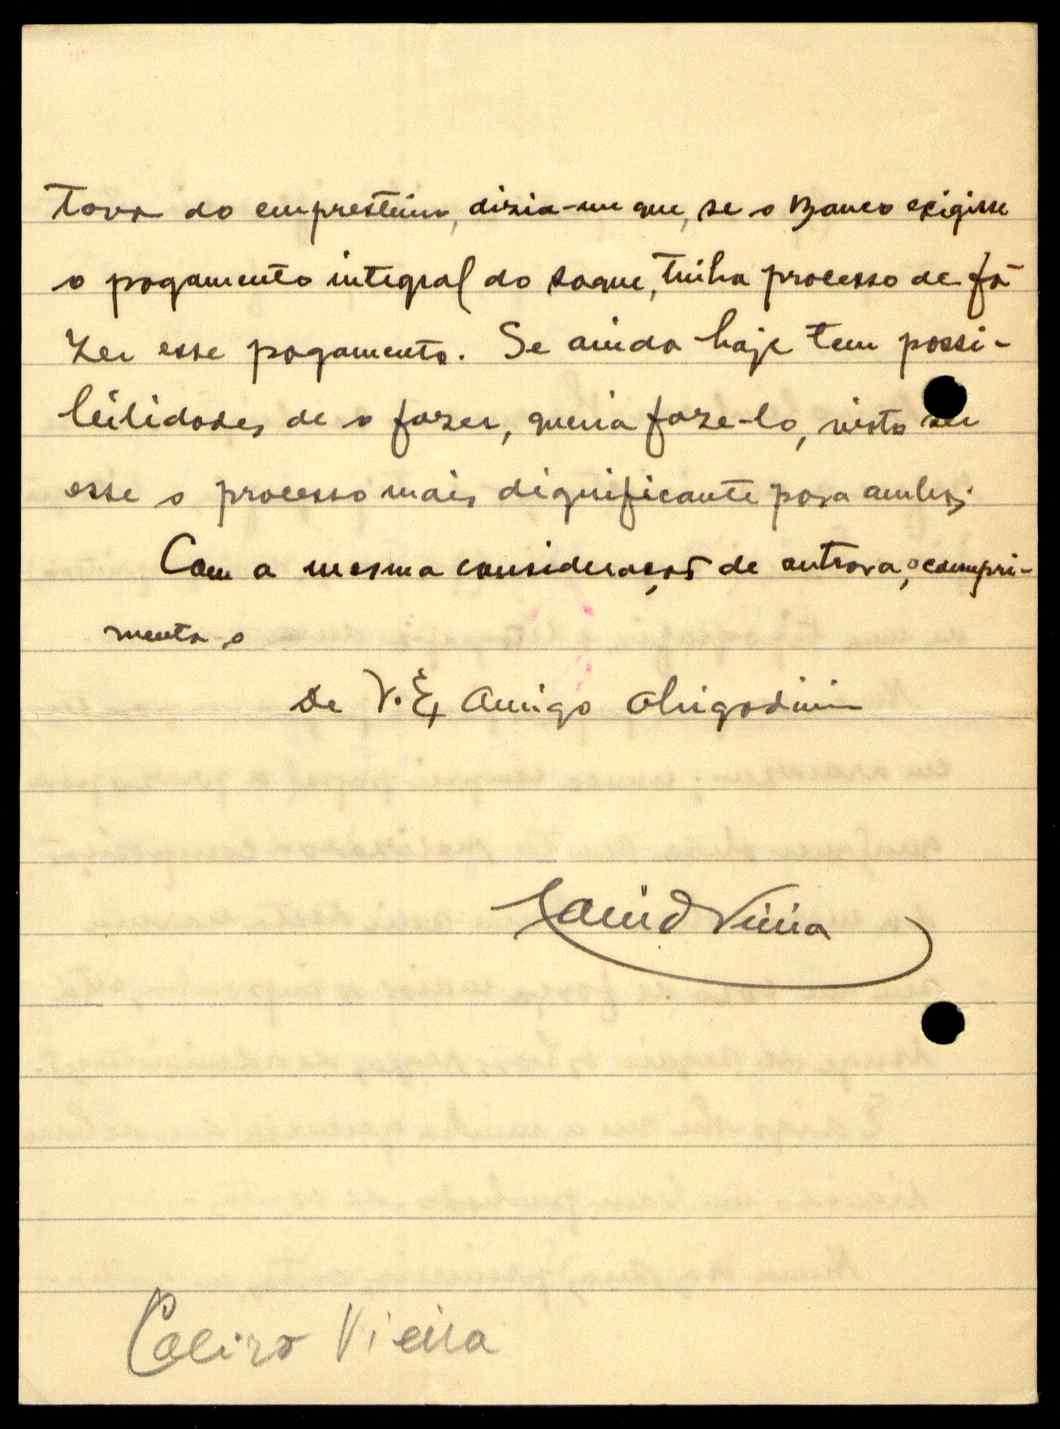 tava do emprestimo, dizia-me que, se o Banco exigisse
o pagamento integral do saque, tinha processo de fa-
zer esse pagamento. Se ainda hoje tem possi-
bilidades de o fazer, queria faze-lo, visto ser
esse o processo mais dignificante para ambos.
Com a mesma consideração de outrora, o cumpri-
menta o
De V. Ex Amigo Obrigadissimo
Vieira
Vieira